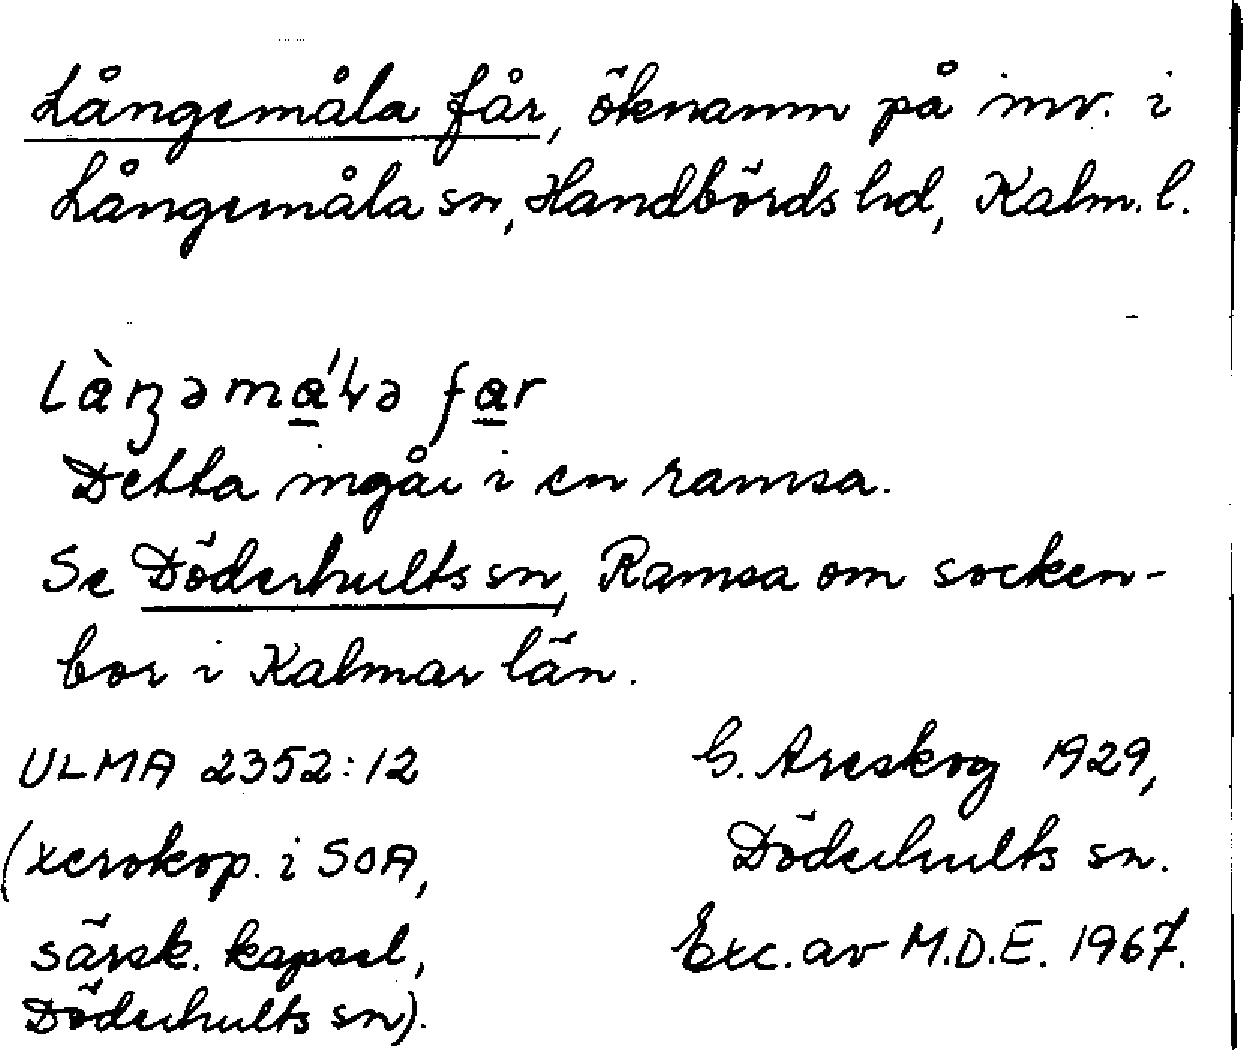 Långemåla får, öknamn på inv. i
Långemåla sn, Handbörds hd, Kalm. l.
Detta ingår i en ramsa.
Se Döderhults sn, Ramsa om socken-
bor i Kalmar län.
ULMA 2352:12
(xerokop. i SOA,
särsk. kapsel,
Döderhults sn).
G. Areskog 1929,
Döderhults sn.
Exc. av M.D.E. 1967.